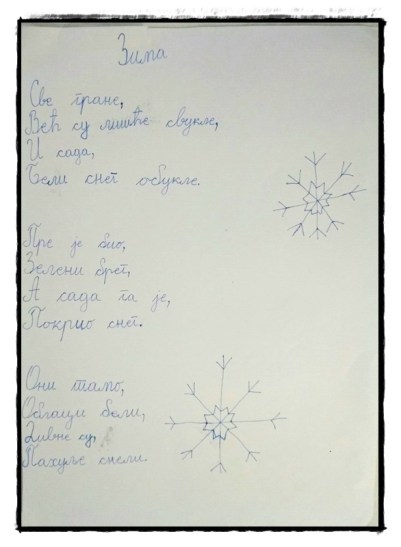 Зима
Све гране,
Већ су лишће свукле,
И сада,
Бели снег обукле
Пре је био,
Зелени брег,
А сада га је,
Покрио снег.
Они тамо,
Облаци бели,
Дивне су,
Пахуље снели.